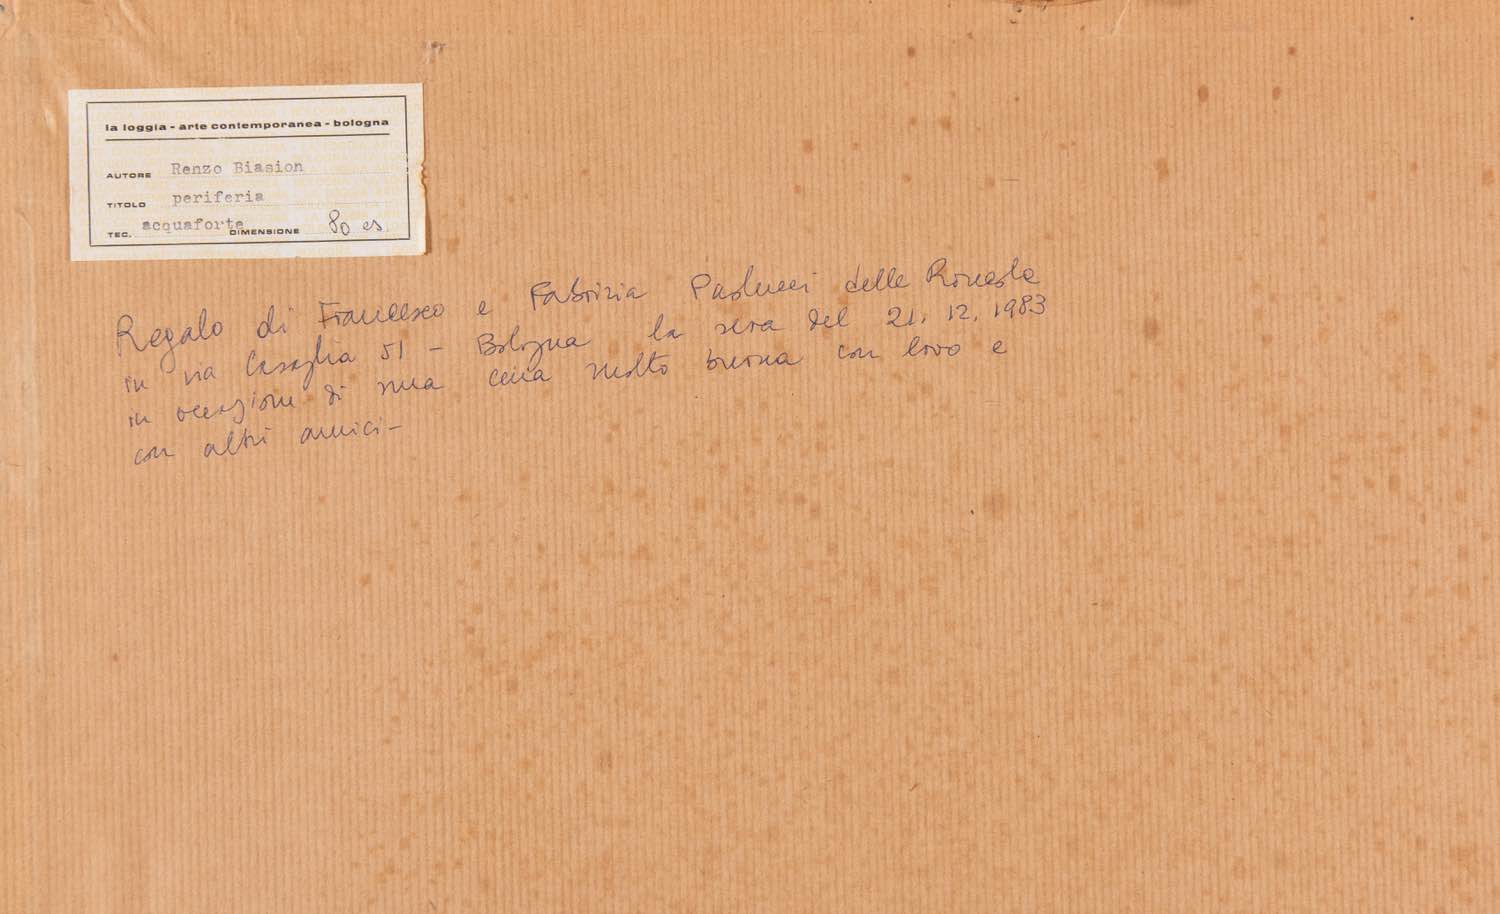 la loggia - arte contemporanea - bologna
AUTORE Renzo Biasion
TITOLO periferia
TEC. acquaforte DIMENSIONE 80 es.
Regalo di Francesco e Fabrizia Paolucci delle Roncole
in via Casaglia 51 - Bologna la sera del 21. 12. 1983
in occasione di una cena molto buona con loro e
con altri amici -